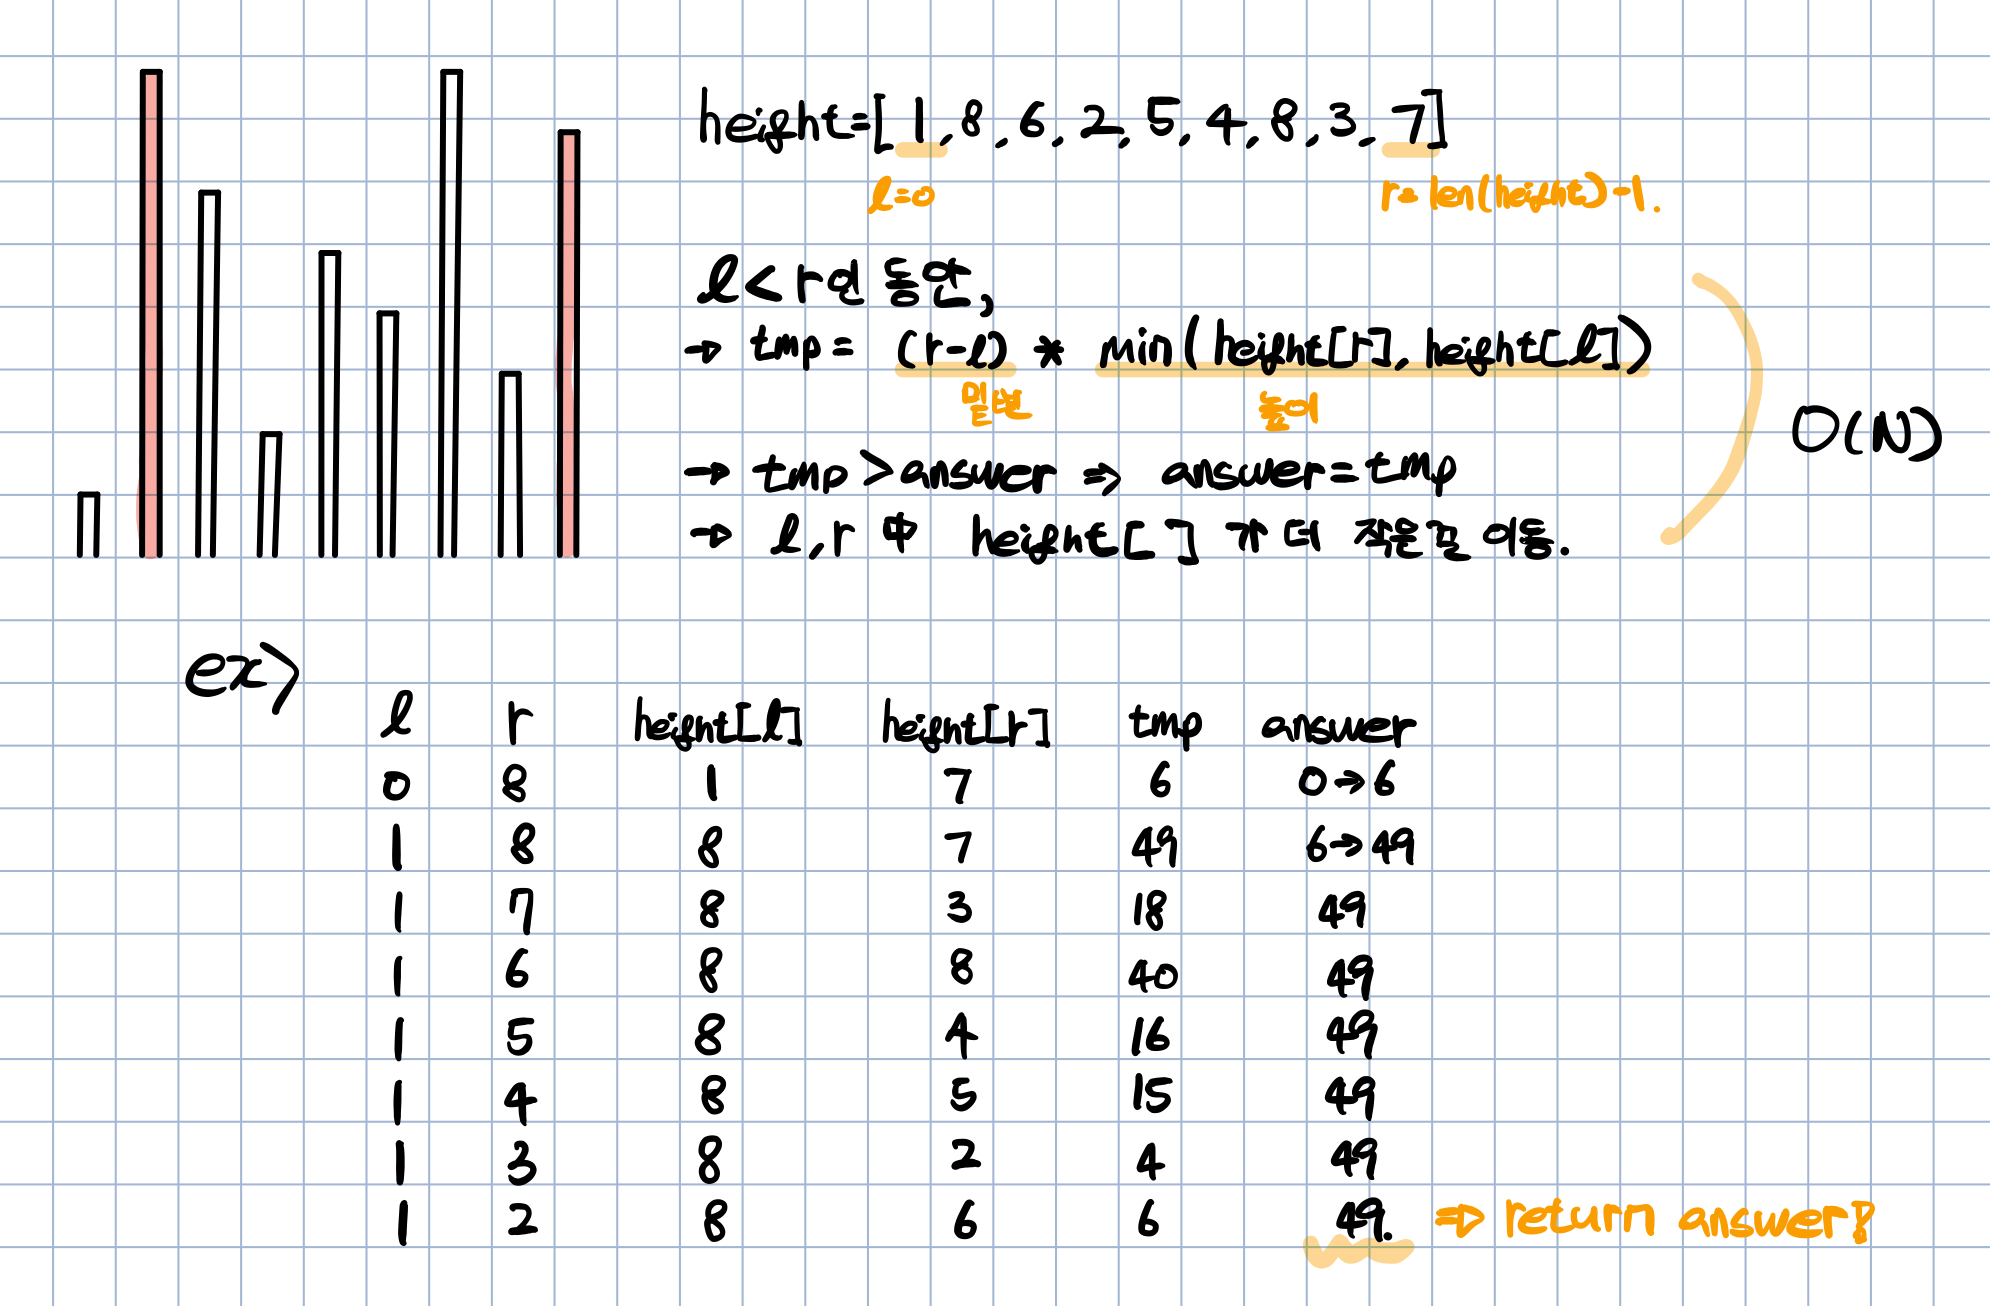 height=[1,8,6,2,5,4,8,3,7]
l=0 r=len(height)-1.
l<r인 동안,
→ tmp= (r-l) * min(height[r], height[l])
밑변 높이
O(N)
→ tmp>answer ⇒ answer=tmp
→ l,r 中 height[ ] 가 더 작은걸 이동.
ex>
l r height[l] height[r] tmp answer
0 8 1 7 6 0→6
1 8 8 7 49 6→49
1 7 8 3 18 49
1 6 8 8 40 49
1 5 8 4 16 49
1 4 8 5 15 49
1 3 8 2 4 49
1 2 8 6 6 49. ⇒ return answer!